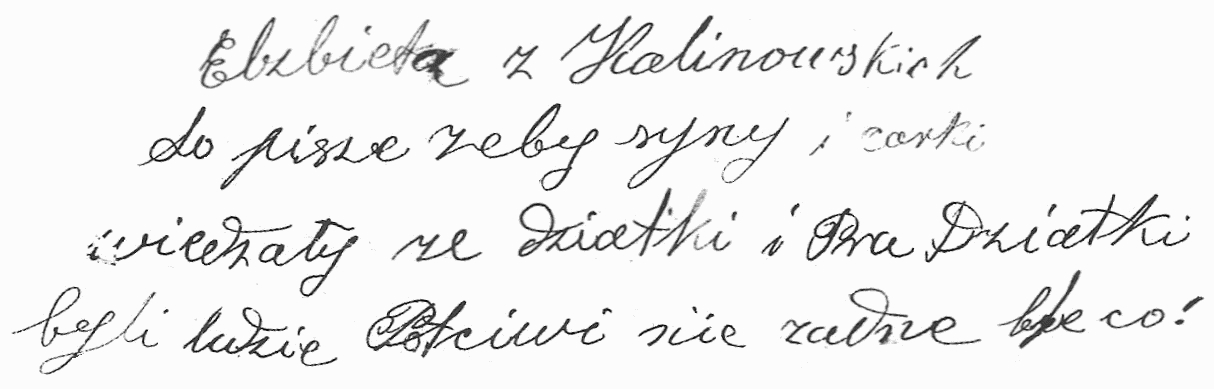 Elzbieta z Kalinowskich
to pisze zeby syny i corki
wiedzaty ze dziatki i Pra Dziatki
byli ludzie Potciwi nie zadne byle co!